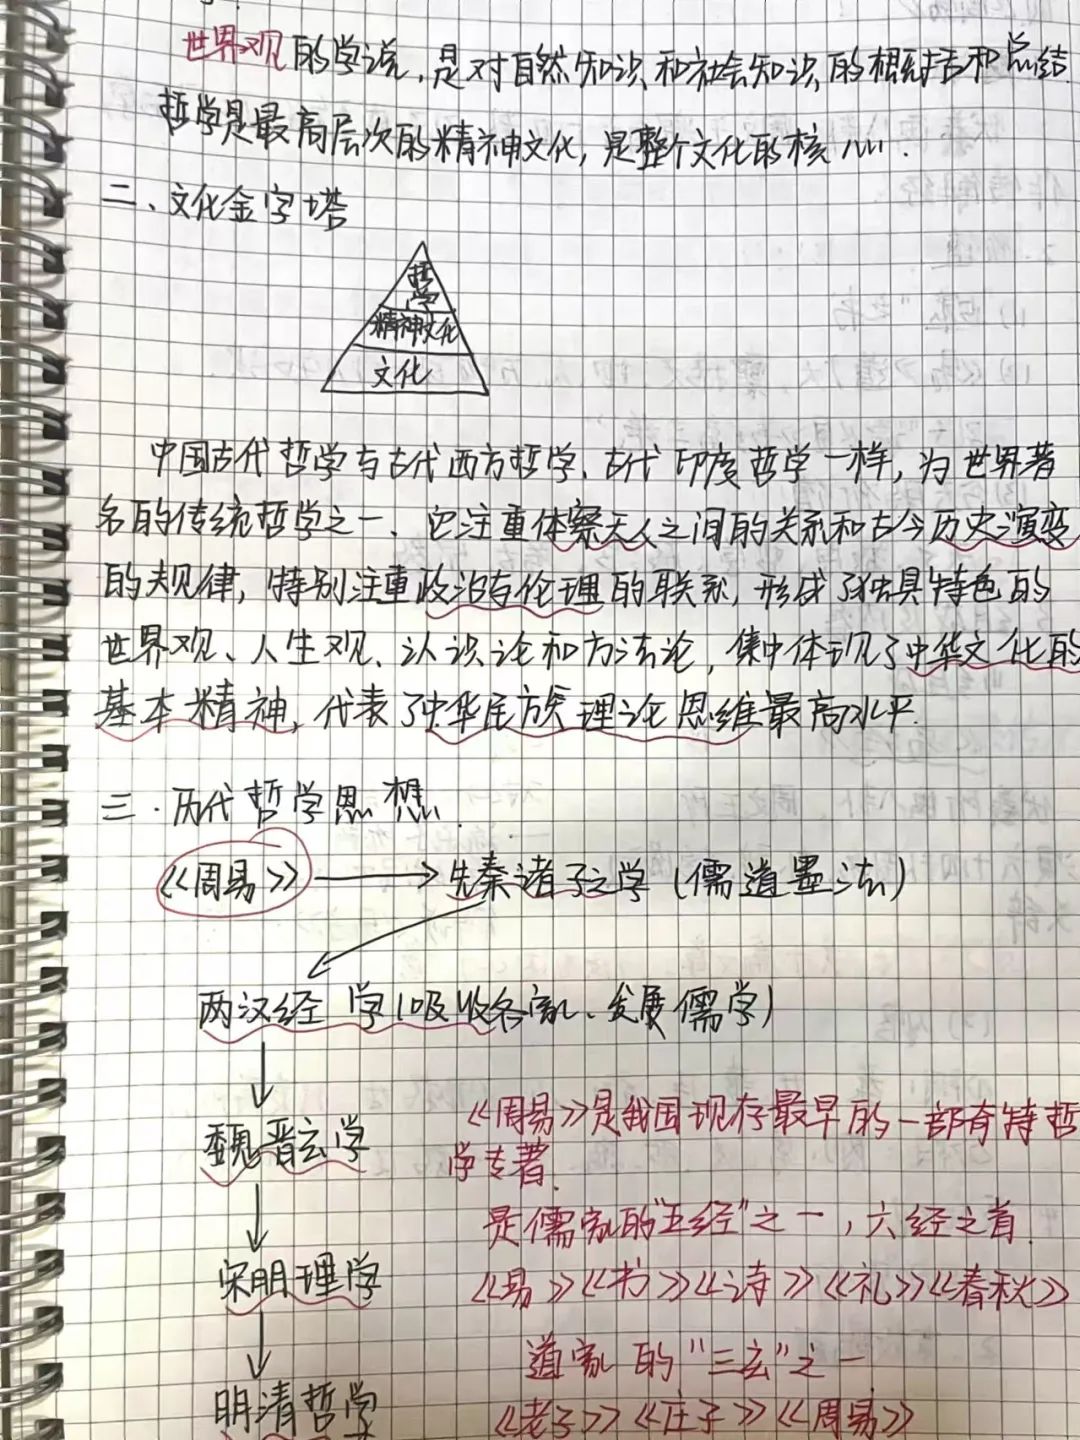 世界观的学说,是对自然知识和社会知识的概括和总结
哲学是最高层次的精神文化,是整个文化的核心.
二、文化金字塔
哲学
精神文化
文化
中国古代哲学与古代西方哲学、古代印度哲学一样,为世界著
名的传统哲学之一、它注重体察天人之间的关系和古今历史演变
的规律,特别注重政治与伦理的联系,形成了独具特色的
世界观、人生观、认识论和方法论,集中体现了中华文化的
基本精神,代表了中华民族理论思维最高水平.
三.历代哲学思想.
《周易》→先秦诸子之学(儒道墨法)
两汉经学(吸收各家、发展儒学)
魏晋玄学
宋明理学
明清哲学
《周易》是我国现存最早的一部奇特哲
学专著.
是儒家的"五经"之一,六经之首.
《易》《书》《诗》《礼》《春秋》
道家的"三玄"之一
《老子》《庄子》《周易》